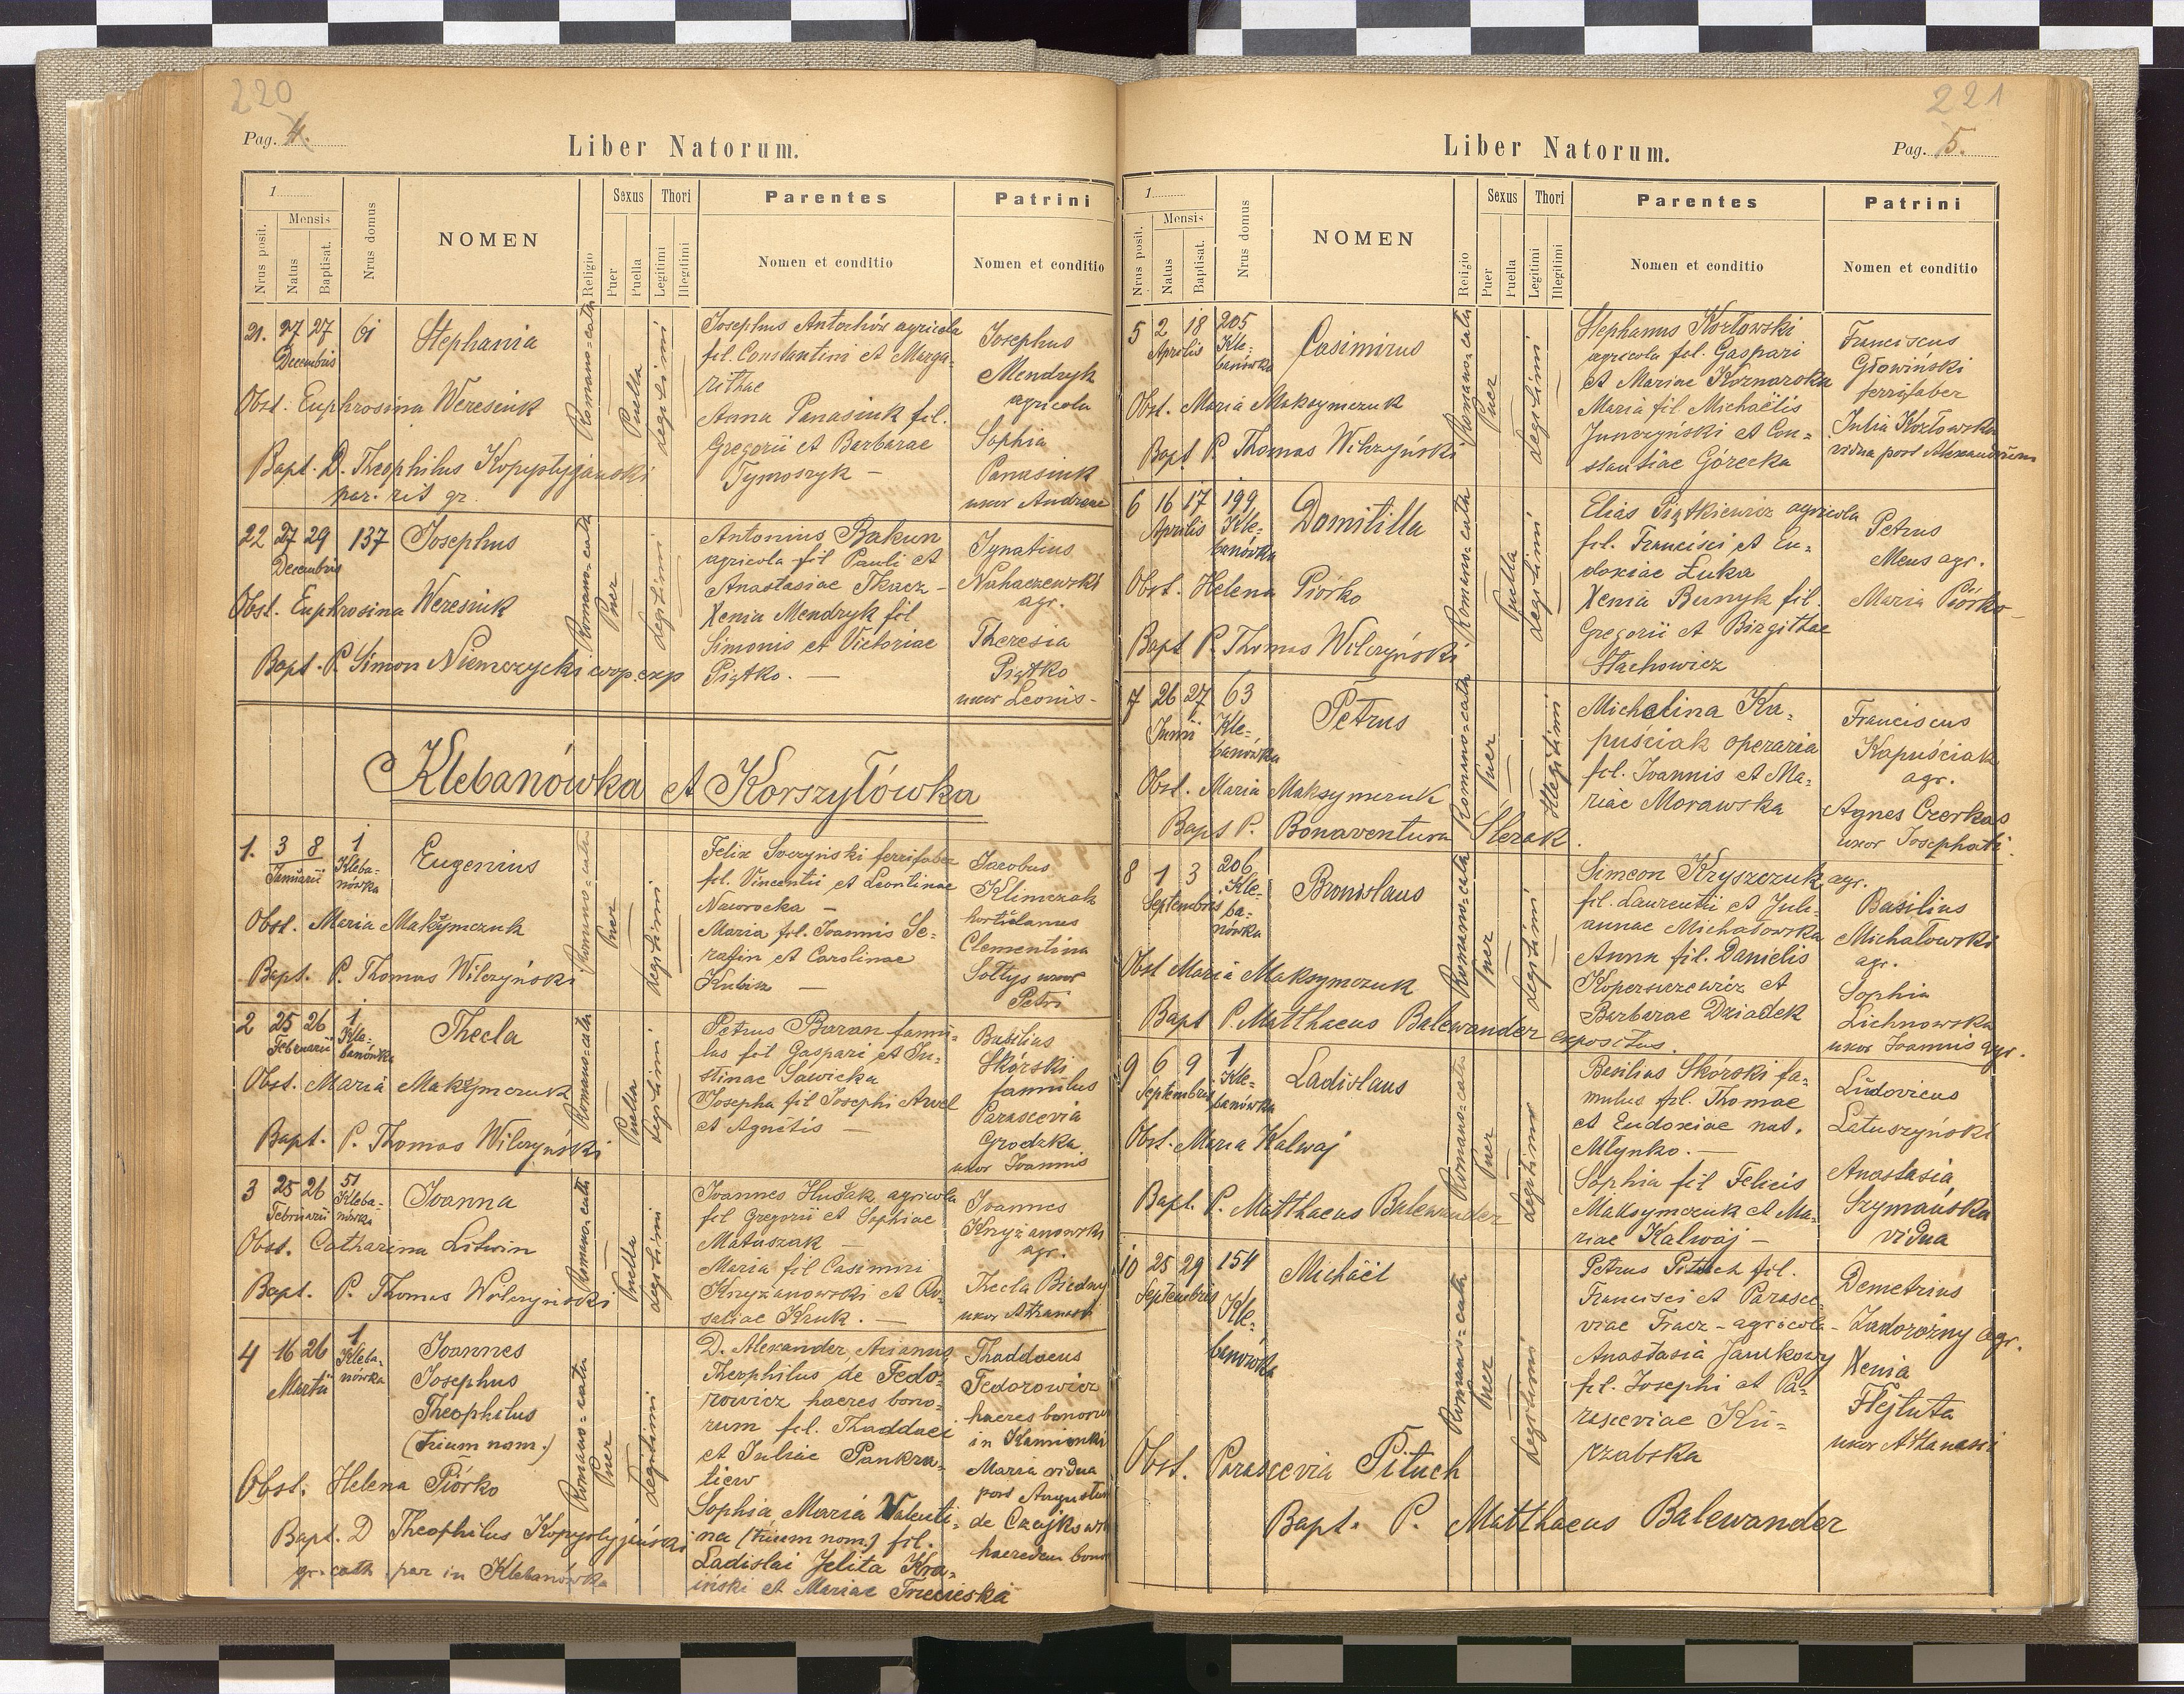 220
Pag. 4.
Liber Natorum.
1
Nrus posit.
Mensis
Natus
Baptisat.
Nrus domus
NOMEN
Religio
Sexus
Puer
Puella
Thori
Legitimi
Illegitimi
Parentes
Nomen et conditio
Patrini
Nomen et conditio
21. 27 27 61 Stephania
Decembris
Obst. Euphrosina Weresiuk
Bapt. D. Theophilus Kopystyjanski
par. rit gr.
Romano=cath
Puella
Legitimi
Josephus Antochów agricola
fil. Constantini et Marga-
rithae
Anna Panasiuk fil.
Gregorii et Barbarae
Tymoszyk –
Josephus
Mendryk
agricola
Sophia
Panasiuk
uxor Andreae
22 27 29 137 Josephus
Decembris
Obst. Euphrosina Weresiuk
Bapt. P. Simon Niemczycki coop. exp
Romano=cath
Puer
Legitimi
Antonius Bakun
agricola fil Pauli et
Anastasiae Tkacz –
Xenia Mendryk fil
Simonis et Victoriae
Piątko. –
Ignatius
Nahaczewski
agr.
Theresia
Piątko
uxor Leonis –
Klebanówka et Korszyłówka
1. 3 8 1 Eugenius
Januarii Kleba-
nówka
Obst. Maria Maksymczuk
Bapt. P. Thomas Wilczyński
Romano=cath
Puer
Legitimi
Felix Soczyński ferrifaber
fil. Vincentii et Leontinae
Nawrocka –
Maria fil. Joannis Se=
rafin et Carolinae
Kubisz –
Jacobus
Klimczak
hortulanus
Clementina
Sołtys uxor
Petri
2 25 26 1 Thecla
Februarii Kle-
banówka
Obst. Maria Maksymczuk
Bapt. P. Thomas Wilczyński
Romano=cath
Puella
Legitimi
Petrus Baran famu-
lus fil Gaspari et Ju-
stinae Sawicka
Josepha fil Josephi
et Agnetis –
Basilius
Skórski
famulus
Parascevia
Grodzka
uxor Joannis
3 25 26 51 Joanna
Februarii Kleba-
nówka
Obst. Catharina Litwin
Bapt. P. Thomas Wilczyński
Romano=cath
Puella
Legitimi
Joannes Husak agricola
fil Gregorii et Sophiae
Matuszak –
Maria fil Casimiri
Krzyżanowski et Ro-
saliae Kruk. –
Joannes
Krzyżanowski
agr.
Thecla Biedny
uxor Athanasi
4 16 26 1 Joannes
Martii Kleba-
nówka
Josephus
Theophilus
(trium nom.)
Obst. Helena Piórko
Bapt. D Theophilus Kopystyjański
gr. cath. par in Klebanówka
Romano=cath
Puer
Legitimi
D. Alexander, Arianus
Theophilus de Fedo-
rowicz haeres bono-
rum fil. Thaddaei
et Juliae Pankra-
tiew
Sophia, Maria Valenti-
na (trium nom.) fil.
Ladislai Jelita Kra-
iński et Mariae Trzecieska
Thaddaeus
Fedorowicz
haeres bonorum
in Kamionki
Maria vidua
post Augustum
de Czajkowski
haeredem bono
221
Liber Natorum.
Pag. 5.
1
Nrus posit.
Mensis
Natus
Baptisat.
Nrus domus
NOMEN
Religio
Sexus
Puer
Puella
Thori
Legitimi
Illegitimi
Parentes
Nomen et conditio
Patrini
Nomen et conditio
5 2 18 205 Casimirus
Aprilis Kle-
banówka
Obst. Maria Maksymczuk
Bapt P. Thomas Wilczyński
Romano=cath
Puer
Legitimi
Stephanus Kozłowski
agricola fil. Gaspari
et Mariae Koznarska
Maria fil Michaëlis
Junczyński et Con=
stantiae Górecka
Franciscus
Głowiński
ferrifaber
Julia Kozłowska
vidua post Alexandrum
6 16 17 199 Domitilla
Aprilis Kle-
banówka
Obst. Helena Piórko
Bapt P. Thomas Wilczyński
Romano=cath
Puella
Legitimi
Elias Piątkiewicz agricola
fil. Francisci et Eu-
doxiae Łuka
Xenia Bunyk fil.
Gregorii et Birgittae
Stachowicz
Petrus
Meus agr.
Maria Piórko
7 26 27 63 Petrus
Junii Kle-
banówka
Obst. Maria Maksymczuk
Bapt P. Bonaventura Ślerak.
Romano=cath
Puer
Illegitimi
Michalina Ka-
puściak operaria
fil. Joannis et Ma-
riae Morawska
Franciscus
Kapuściak
agr.
Agnes Czerkas
uxor Josephati.
8 1 3 206 Bronislaus
Septembris Kle-
ba-
nówka
Obst Maria Maksymczuk
Bapt P. Matthaeus Balewander expositus.
Romano=cath
Puer
Legitimi
Simeon Kryszczuk agr.
fil. Laurentii et Juli-
annae Michałowska
Anna fil. Danielis
Koperszczewicz et
Barbarae Dziadek
Basilius
Michałowski
agr.
Sophia
Lichnowska
uxor Joannis agr.
9 6 9 1 Ladislaus
Septembris Kle-
banówka
Obst. Maria Kalwaj
Bapt. P. Matthaeus Balewander
Romano=cath
Puer
Legitimi
Basilius Skórski fa-
mulus fil. Thomae
et Eudoxiae nat.
Młynko. –
Sophia fil Felicis
Maksymczuk et Ma-
riae Kalwaj –
Ludovicus
Latuszyński
Anastasia
Szymańska
vidua
10 25 29 154 Michaël
Septembris Kle-
banówka
Obst. Parascevia Pituch
Bapt. P. Matthaeus Balewander
Romano=cath
Puer
Legitimi
Petrus Pituch fil.
Francisci et Parasce-
viae Fracz – agricola –
Anastasia Jankowy
fil. Josephi et Pa-
rasceviae Ku-
rzabska
Demetrius
Zadorożny agr.
Xenia
Hejluta
uxor Athanasi